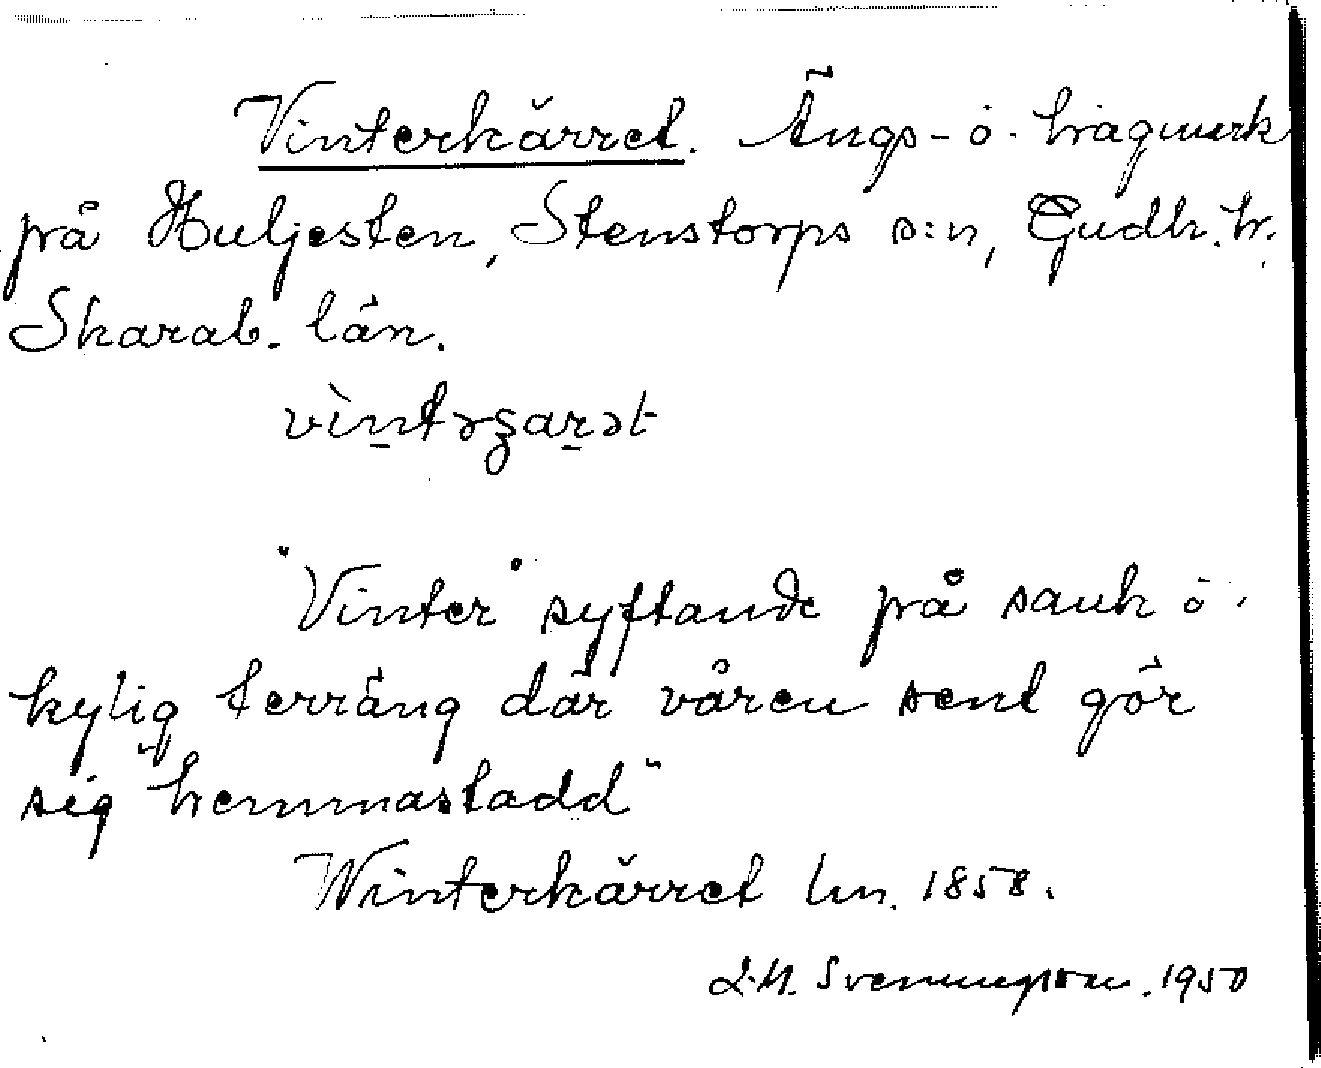 Vinterkärret. Ängs- o. hagmark
på Huljesten, Stenstorps s:n, Gudh. hr.
Skarab. län.
vìntərʓarət
"Vinter" syftande på sank o.
kylig terräng där våren sent gör
sig "hemmastadd"
Winterkärret lm. 1858.
L.M. Svenungsson. 1950